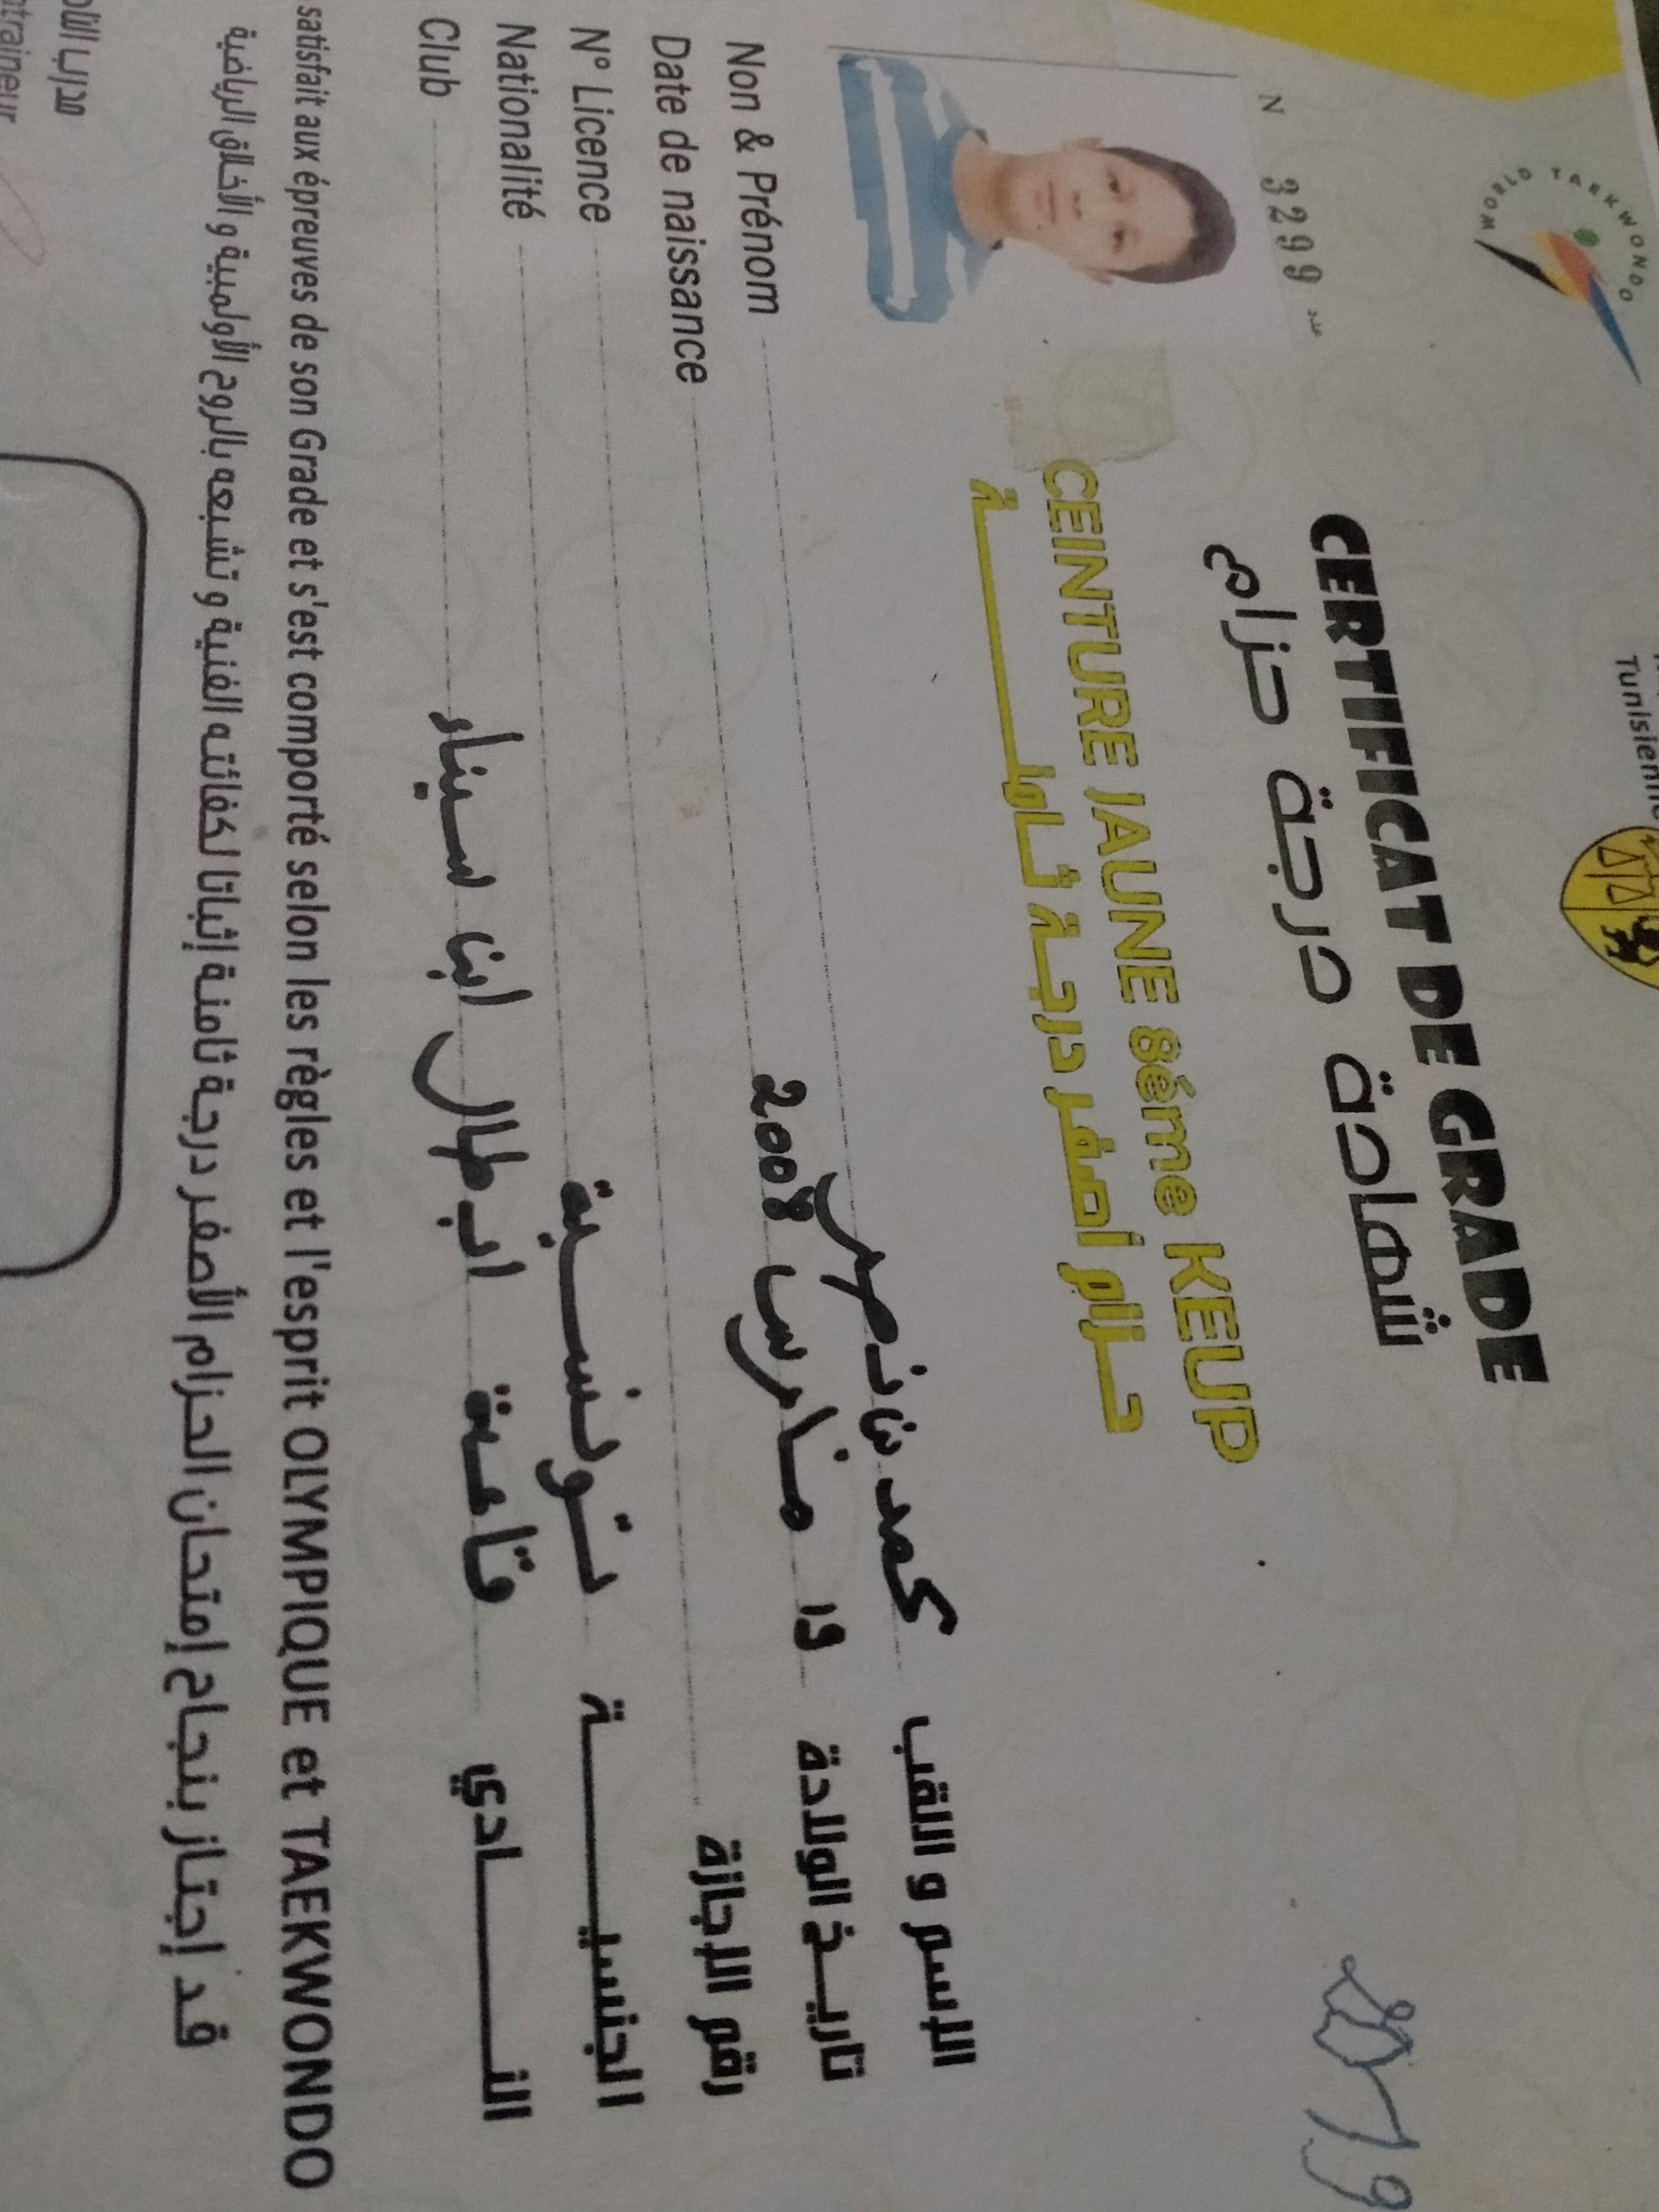 Tunisienne
WORLD TAEKWONDO
CERTIFICAT DE GRADE
شهادة درجة حزام
N 3299 عدد
CEINTURE JAUNE 8éme KEUP
حزام أصفر درجة ثامنة
Non & Prénom محمد بن نصر الإسم و اللقب
Date de naissance 19 مارس 2008 تاريخ الولادة
N° Licence رقم الإجازة
Nationalité تونسية الجنسية
Club قاعة ابطال ابن سينا النادي
satisfait aux épreuves de son Grade et s'est comporté selon les règles et l'esprit OLYMPIQUE et TAEKWONDO
قد إجتاز بنجاح إمتحان الحزام الأصفر درجة ثامنة إثباتا لكفائته الفنية و تشبعه بالروح الأولمبية و الأخلاق الرياضية
مدرب